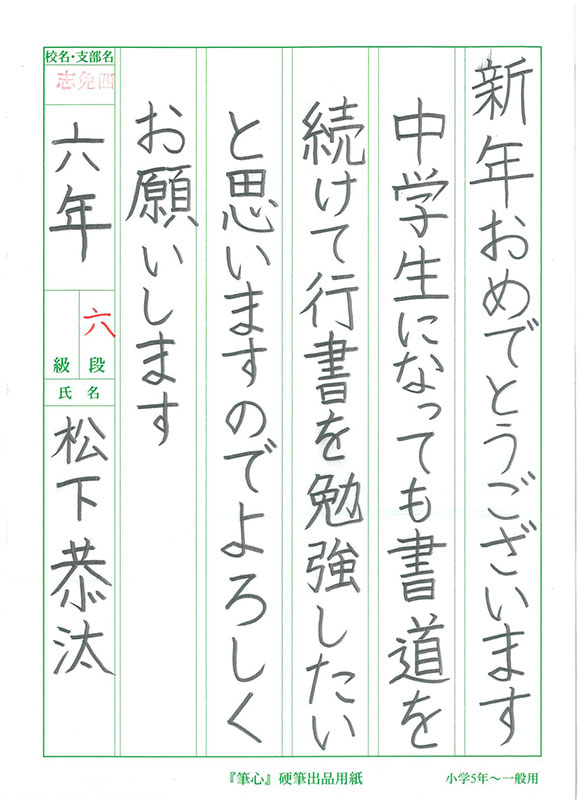 新年おめでとうございます
中学生になっても書道を
続けて行書を勉強したい
と思いますのでよろしく
お願いします
校名・支部名
志免西
六年
六
段
級
氏名
松下恭汰
『筆心』硬筆出品用紙
小学5年～一般用